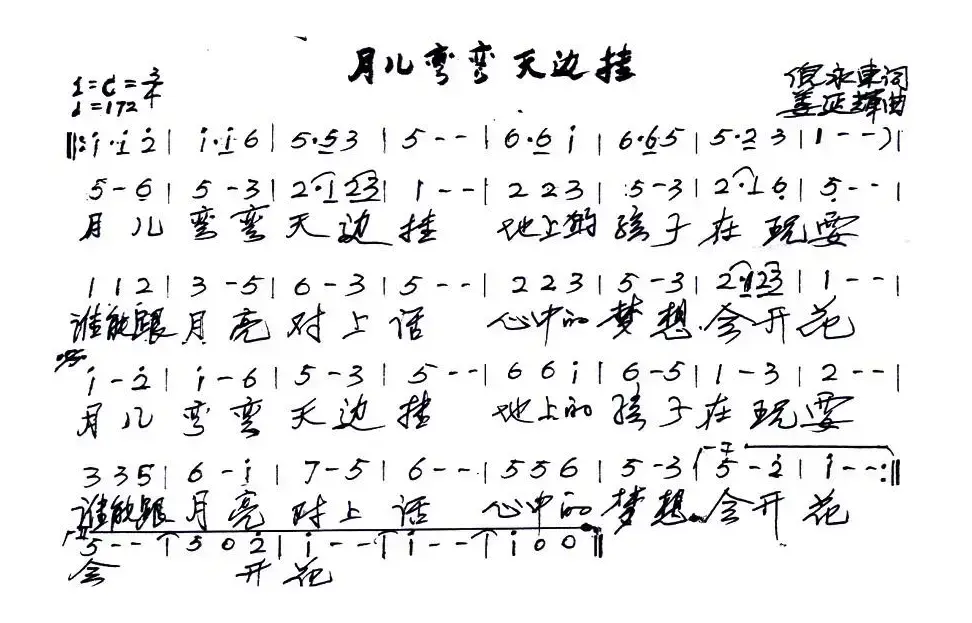 月儿弯弯天边挂
1=C 3/4
♩=172
倪永东词
姜延辉曲
‖: i·i 2̇ | i·i 6 | 5·5 3 | 5 - - | 6·6 i | 6·6 5 | 5·2 3 | 1 - - ) |
5 - 6 | 5 - 3 | 2·1 2 3 | 1 - - | 2 2 3 | 5 - 3 | 2·1 6̣ | 5̣ - - |
月儿弯弯天边挂 地上的孩子在玩耍
1 1 2 | 3 - 5 | 6 - 3 | 5 - - | 2 2 3 | 5 - 3 | 2·1 2 3 | 1 - - |
谁能跟月亮对上话 心中的梦想会开花
i - 2̇ | i - 6 | 5 - 3 | 5 - - | 6 6 i | 6 - 5 | 1 - 3 | 2 - - |
月儿弯弯天边挂 地上的孩子在玩耍
3 3 5 | 6 - i | 7 - 5 | 6 - - | 5 5 6 | 5 - 3 | 5 - 2̇ | i - - :‖
谁能跟月亮对上话 心中的梦想会开花
5 - - | 5 0 2̇ | i - - | i - - | i 0 0 ‖
会 开花